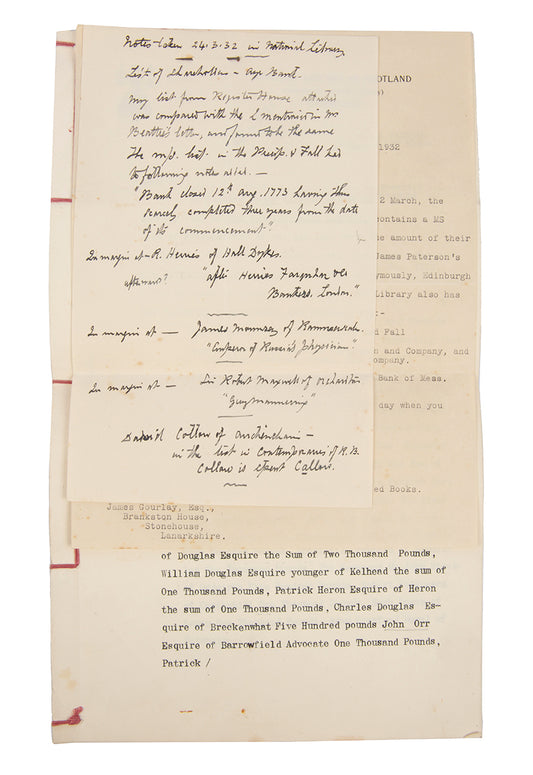 Notes taken 24.3.32 in National Library
List of Shareholders - Ayr Bank.
My list from Register House attached
was compared with the 2 mentioned in Mr
Beattie's letter, and found to be the same
The m/s. list in the Precip. & Fall has
following notes added. —
"Bank closed 12th Aug. 1773 having thus
scarcely completed three years from the date
of its commencement"
In margin at - R. Herries of Hall Dykes.
afterwards? "after Herries Farquhar & Co
Bankers, London."
In margin at — James Mounsey of Rammerscale
"Emperor of Russia's Physician"
In margin at — Sir Robert Maxwell of Orchardton
"Guy Mannering"
David Collow of Auchenchain —
in the list in Contemporaries of R.B.
Collow is spent Callow.
COTLAND
1932
2 March, the
contains a MS
e amount of their
James Paterson's
ymously, Edinburgh
Library also has
:-
d Fall
n and Company, and
ompany.
Bank of Mess.
day when you
ed Books.
James Gourlay, Esq.,
Brankston House,
Stonehouse,
Lanarkshire.
of Douglas Esquire the Sum of Two Thousand Pounds,
William Douglas Esquire younger of Kelhead the sum of
One Thousand Pounds, Patrick Heron Esquire of Heron
the sum of One Thousand Pounds, Charles Douglas Es-
quire of Breckenwhat Five Hundred pounds John Orr
Esquire of Barrowfield Advocate One Thousand Pounds,
Patrick /